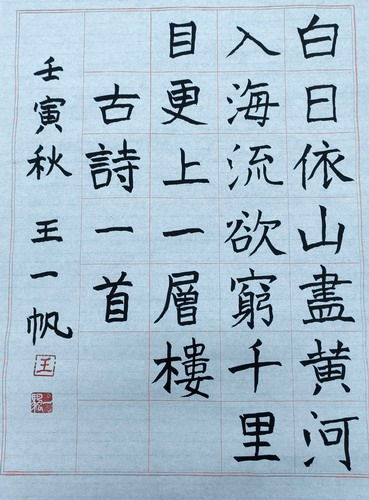 白日依山盡黄河
入海流欲窮千里
目更上一層樓
古詩一首
壬寅秋 王一帆
王